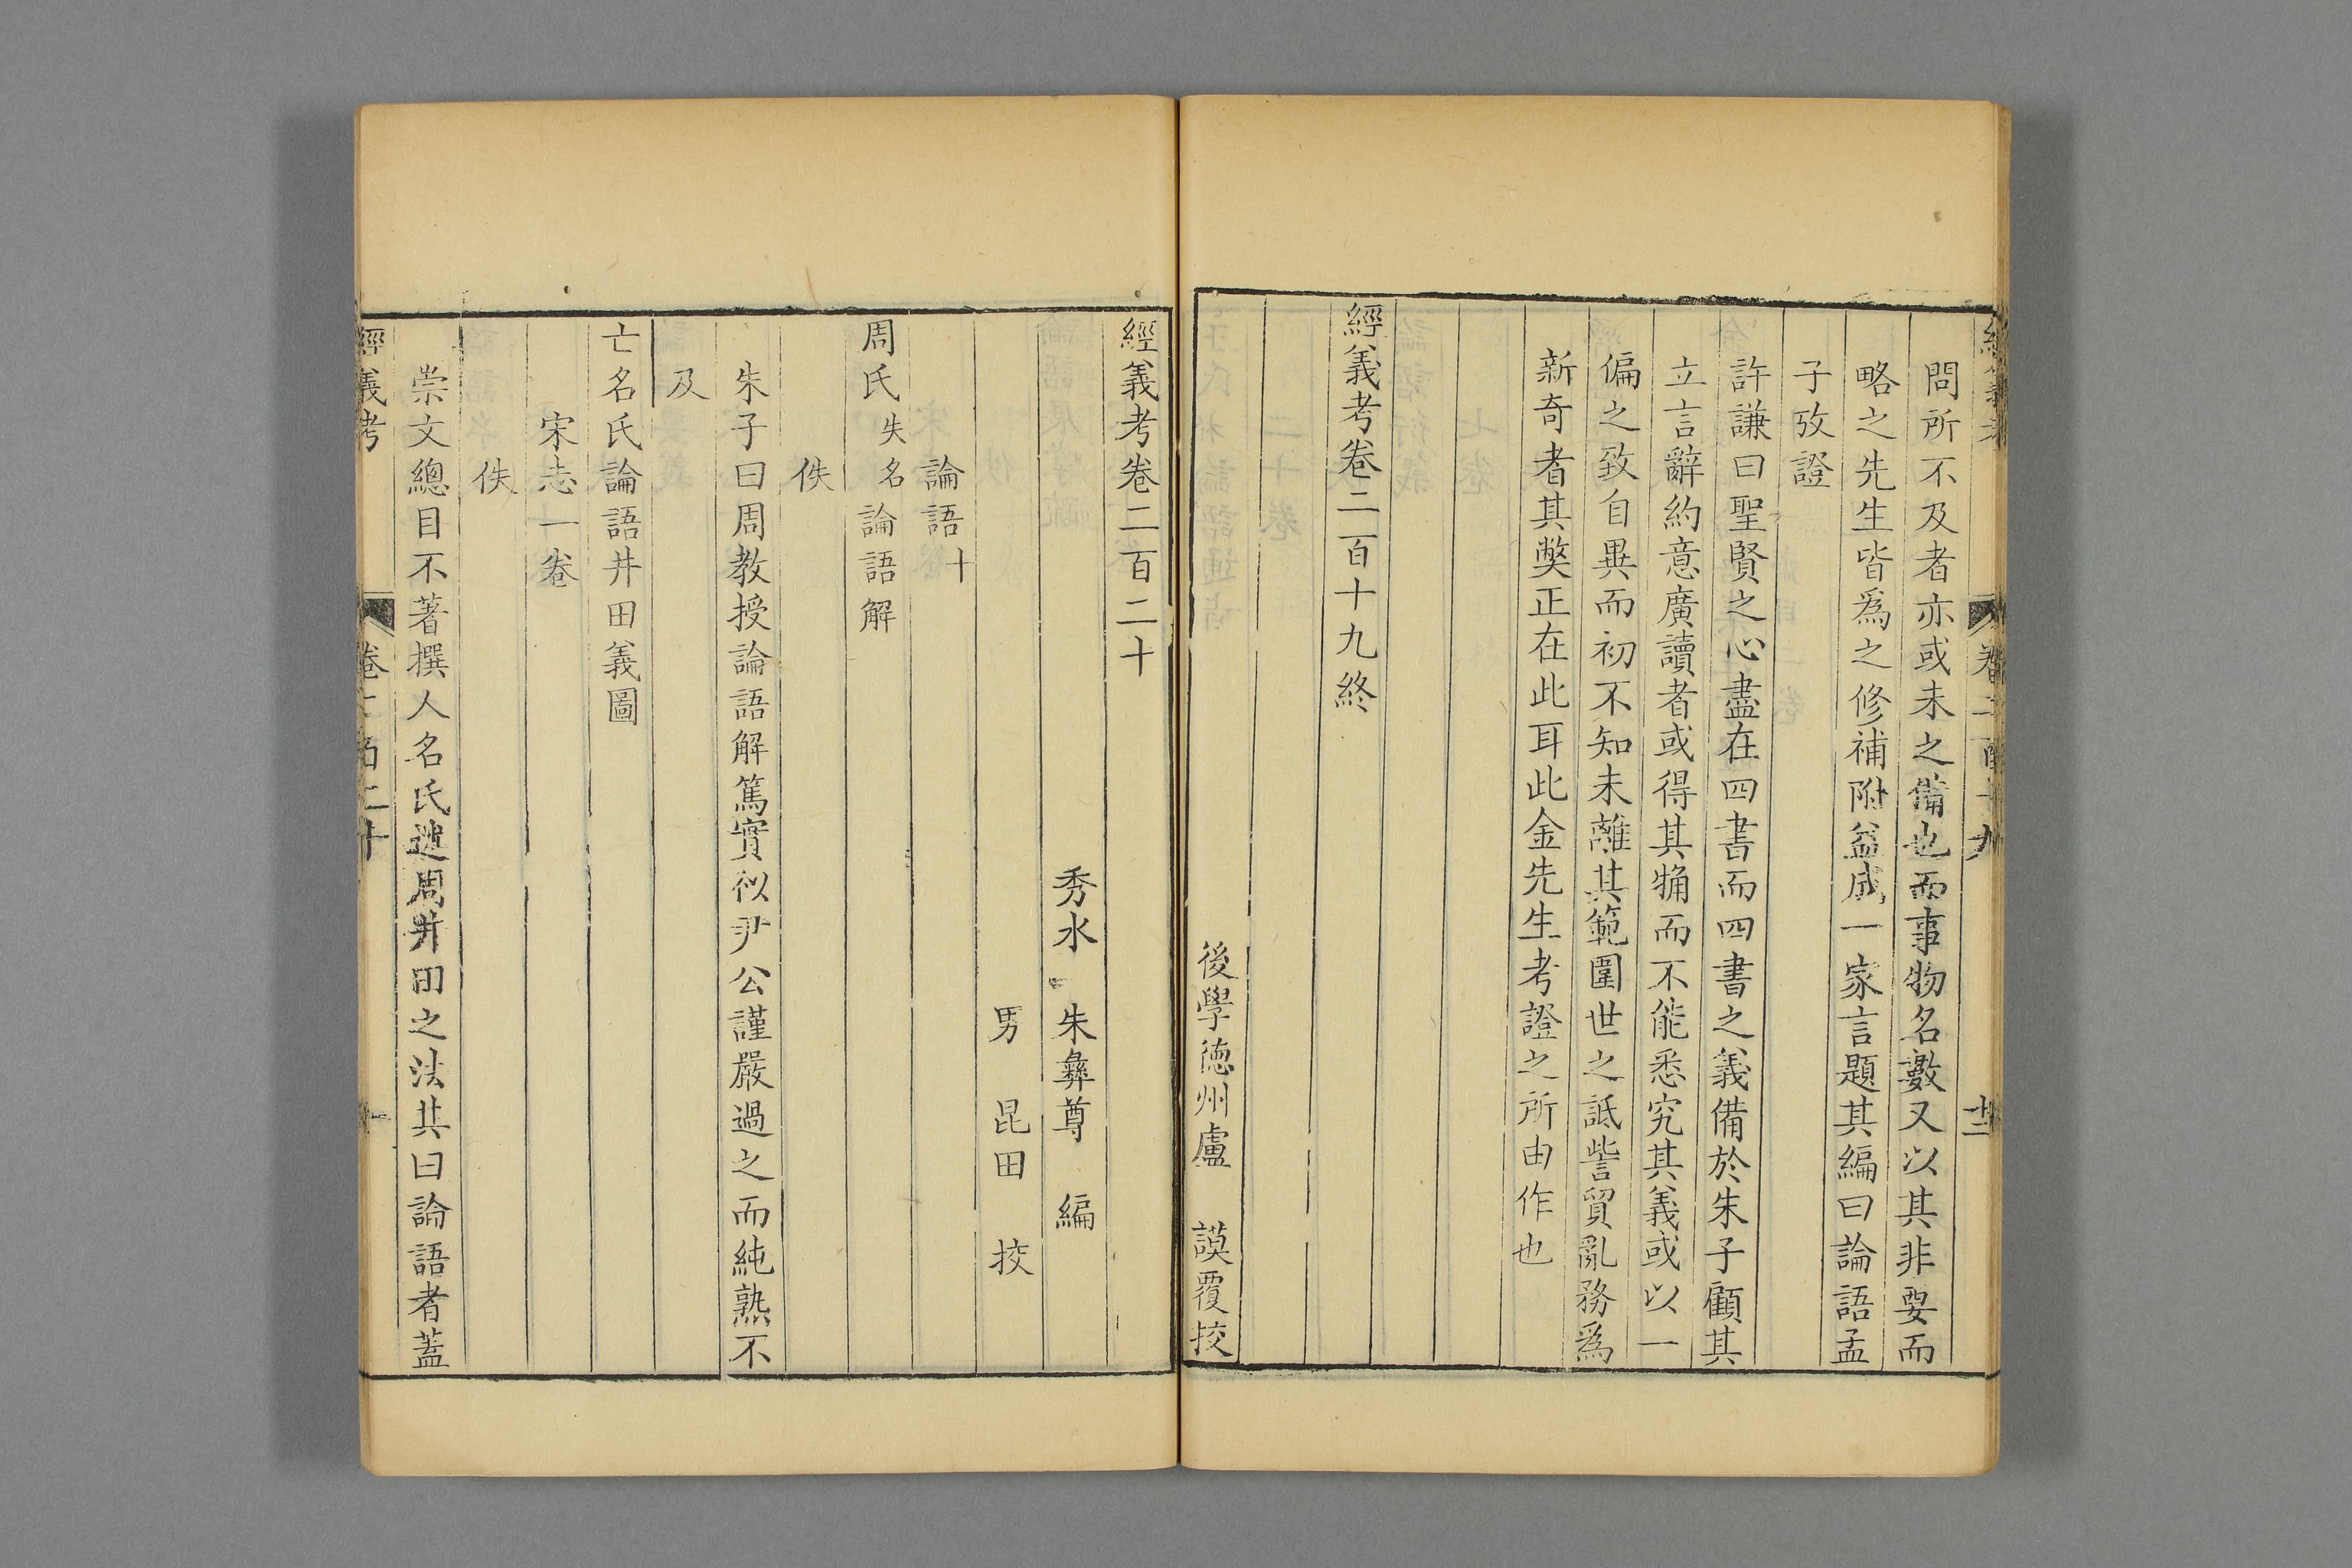 問所不及者亦或未之備也而事物名數又以其非要而
略之先生皆爲之修補附益成一家言題其編曰論語孟
子攷證
許謙曰聖賢之心盡在四書而四書之義備於朱子顧其
立言辭約意廣讀者或得其觕而不能悉究其義或以一
偏之致自異而初不知未離其範圍世之詆訾貿亂務爲
新奇者其弊正在此耳此金先生考證之所由作也
經義考卷二百十九終
後學德州盧 謨覆挍
經義考卷二百二十
秀水 朱彝尊 編
男 昆田 挍
論語十
周氏失名論語解
佚
朱子曰周教授論語解篤實似尹公謹嚴過之而純熟不
及
亡名氏論語井田義圖
宋志一卷
佚
崇文總目不著撰人名氏述周井田之法其曰論語者蓋
經義考 卷二百二十 一